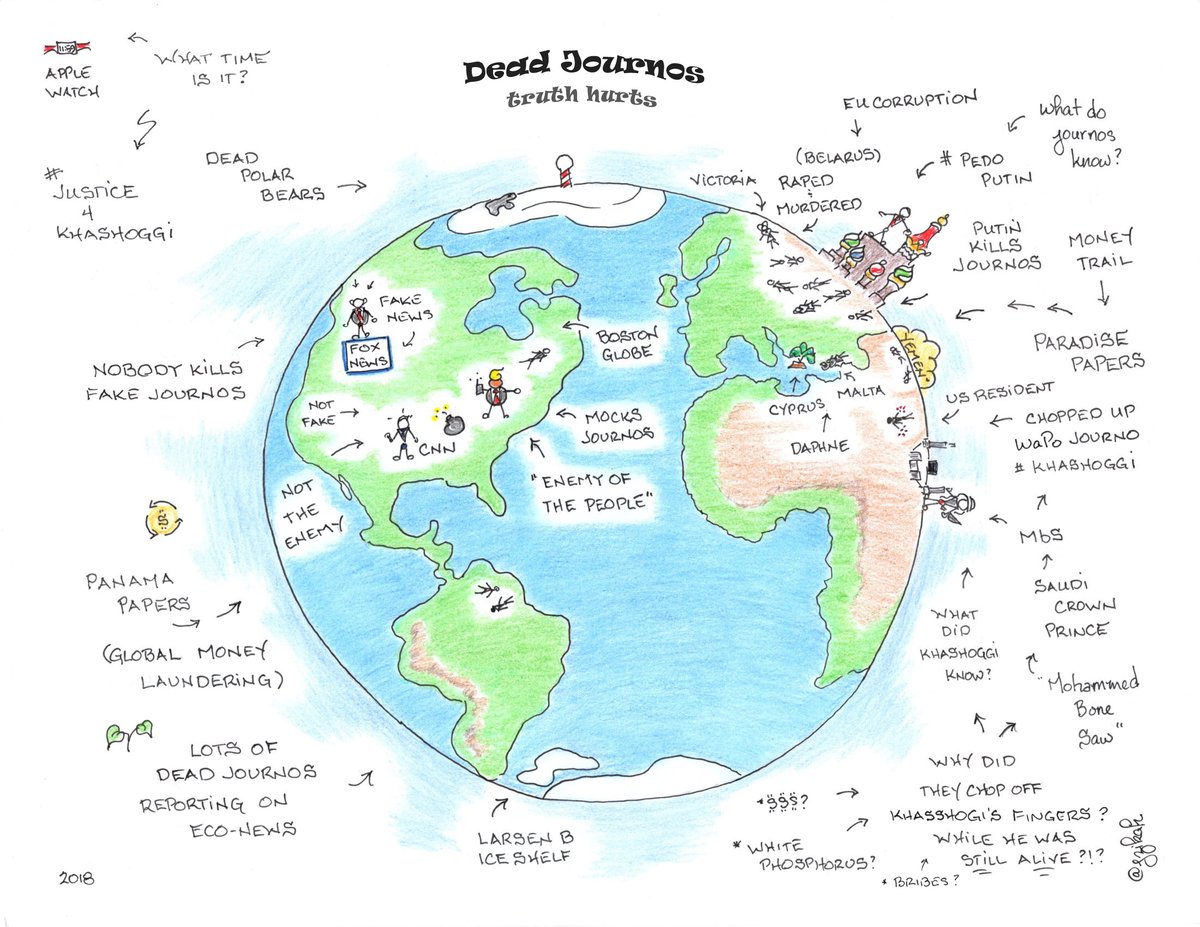 Dead Journos
truth hurts
11:59
APPLE
WATCH
WHAT TIME
IS IT?
#
JUSTICE
4
KHASHOGGI
DEAD
POLAR
BEARS
NOBODY KILLS
FAKE JOURNOS
FAKE
NEWS
FOX
NEWS
NOT
FAKE
CNN
NOT
THE
ENEMY
BOSTON
GLOBE
MOCKS
JOURNOS
"ENEMY OF
THE PEOPLE"
PANAMA
PAPERS
(GLOBAL MONEY
LAUNDERING)
LOTS OF
DEAD JOURNOS
REPORTING ON
ECO-NEWS
2018
LARSEN B
ICE SHELF
EU CORRUPTION
(BELARUS)
VICTORIA
RAPED
MURDERED
What do
journos
know?
# PEDO
PUTIN
PUTIN
KILLS
JOURNOS
MONEY
TRAIL
PARADISE
PAPERS
YEMEN*
CYPRUS
MALTA
DAPHNE
US RESIDENT
CHOPPED UP
WaPo JOURNO
# KHASHOGGI
MbS
SAUDI
CROWN
PRINCE
"Mohammed
Bone
Saw"
WHAT
DID
KHASHOGGI
KNOW?
WHY DID
THEY CHOP OFF
KHASSHOGI'S FINGERS?
WHILE HE WAS
STILL ALIVE?!?
*$$$?
*WHITE
PHOSPHORUS?
*BRIBES?